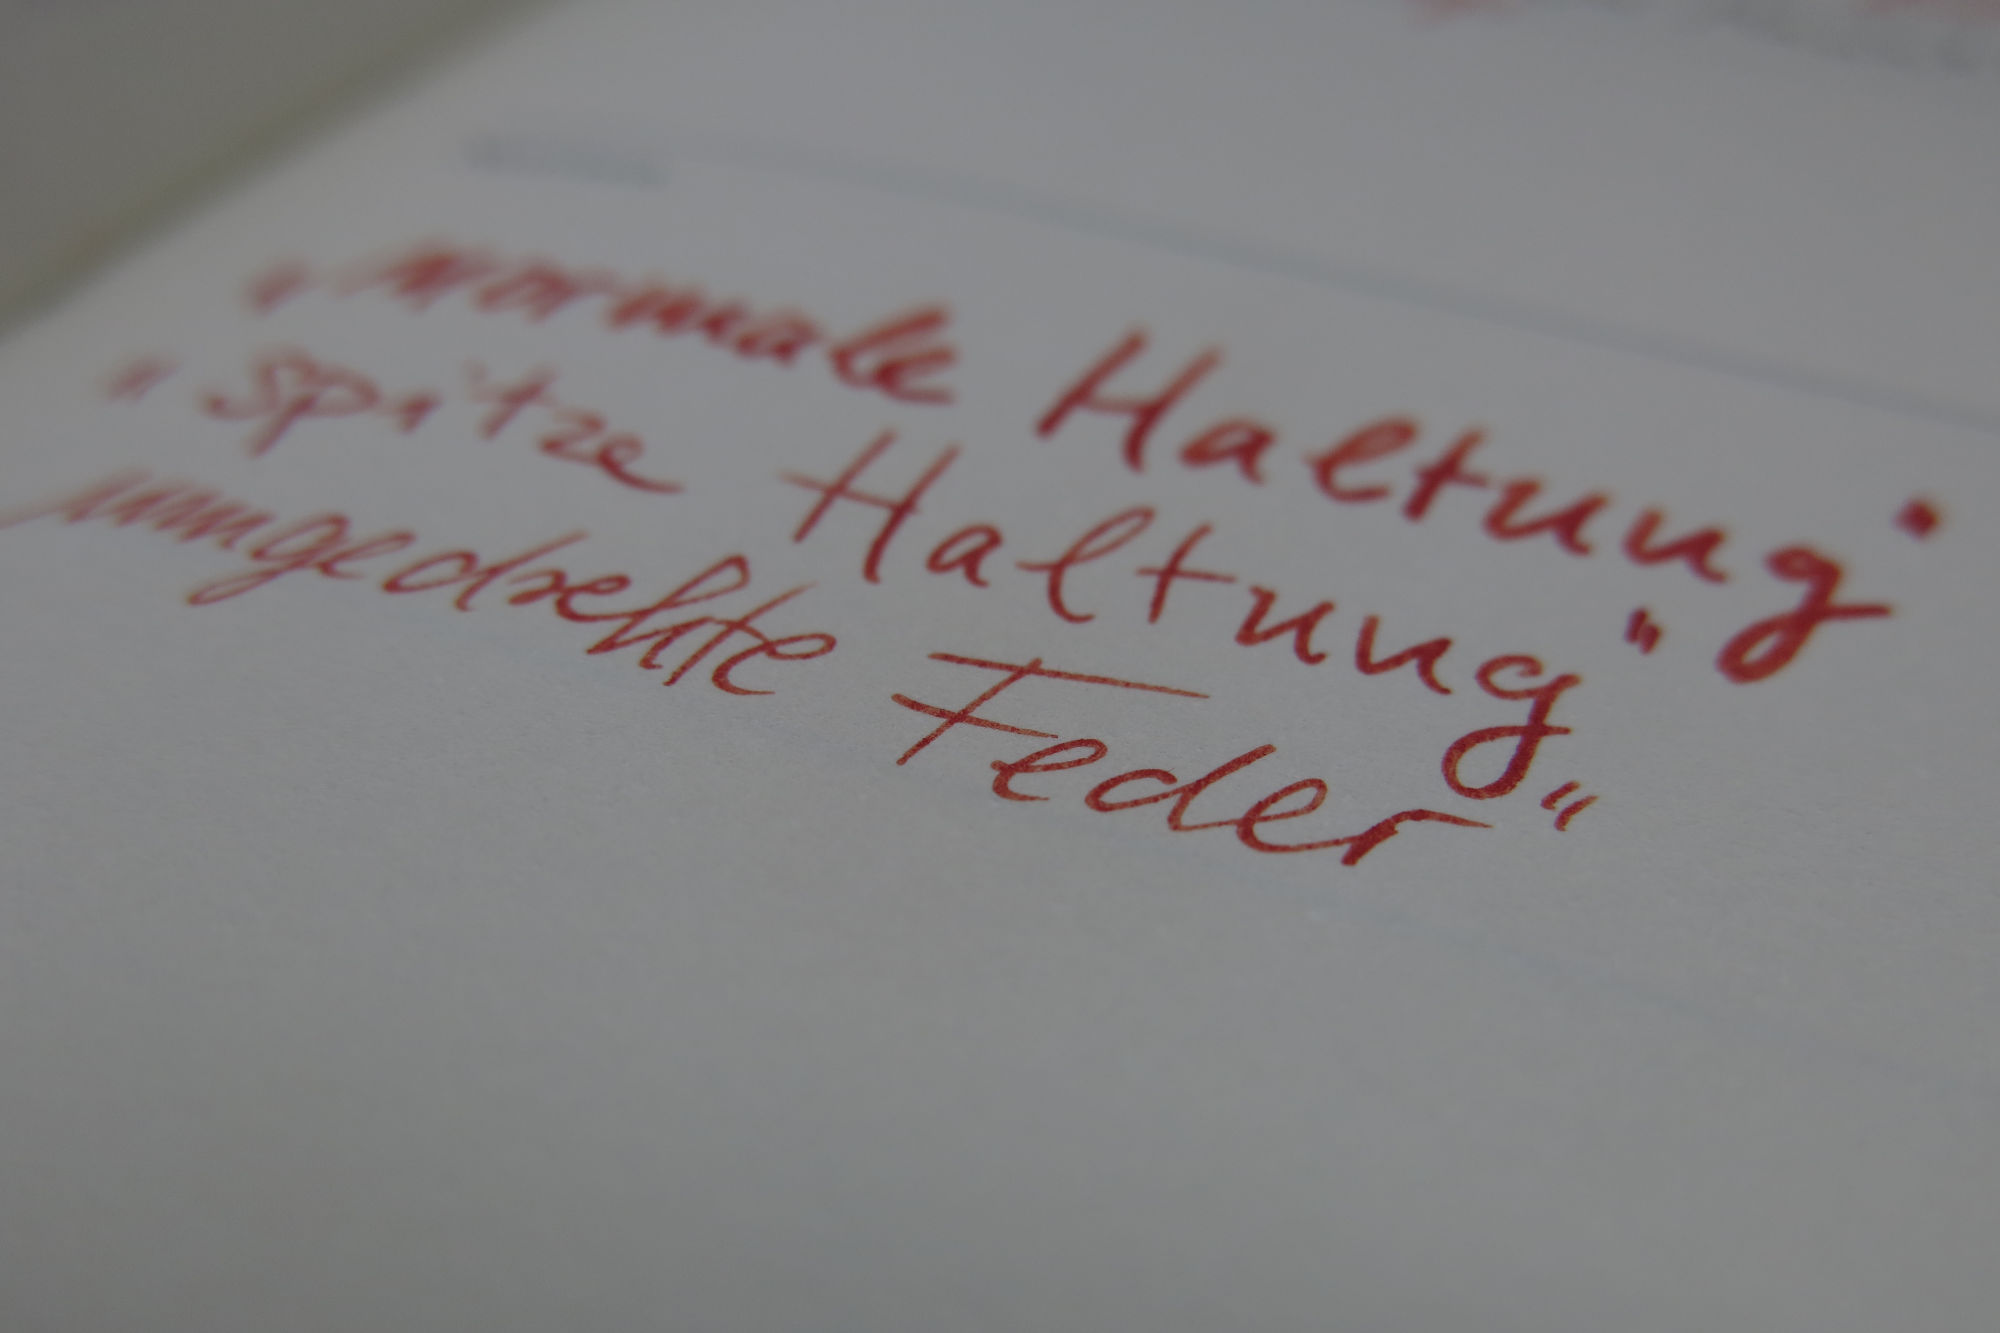 "normale Haltung"
"spitze Haltung"
umgedrehte Feder"